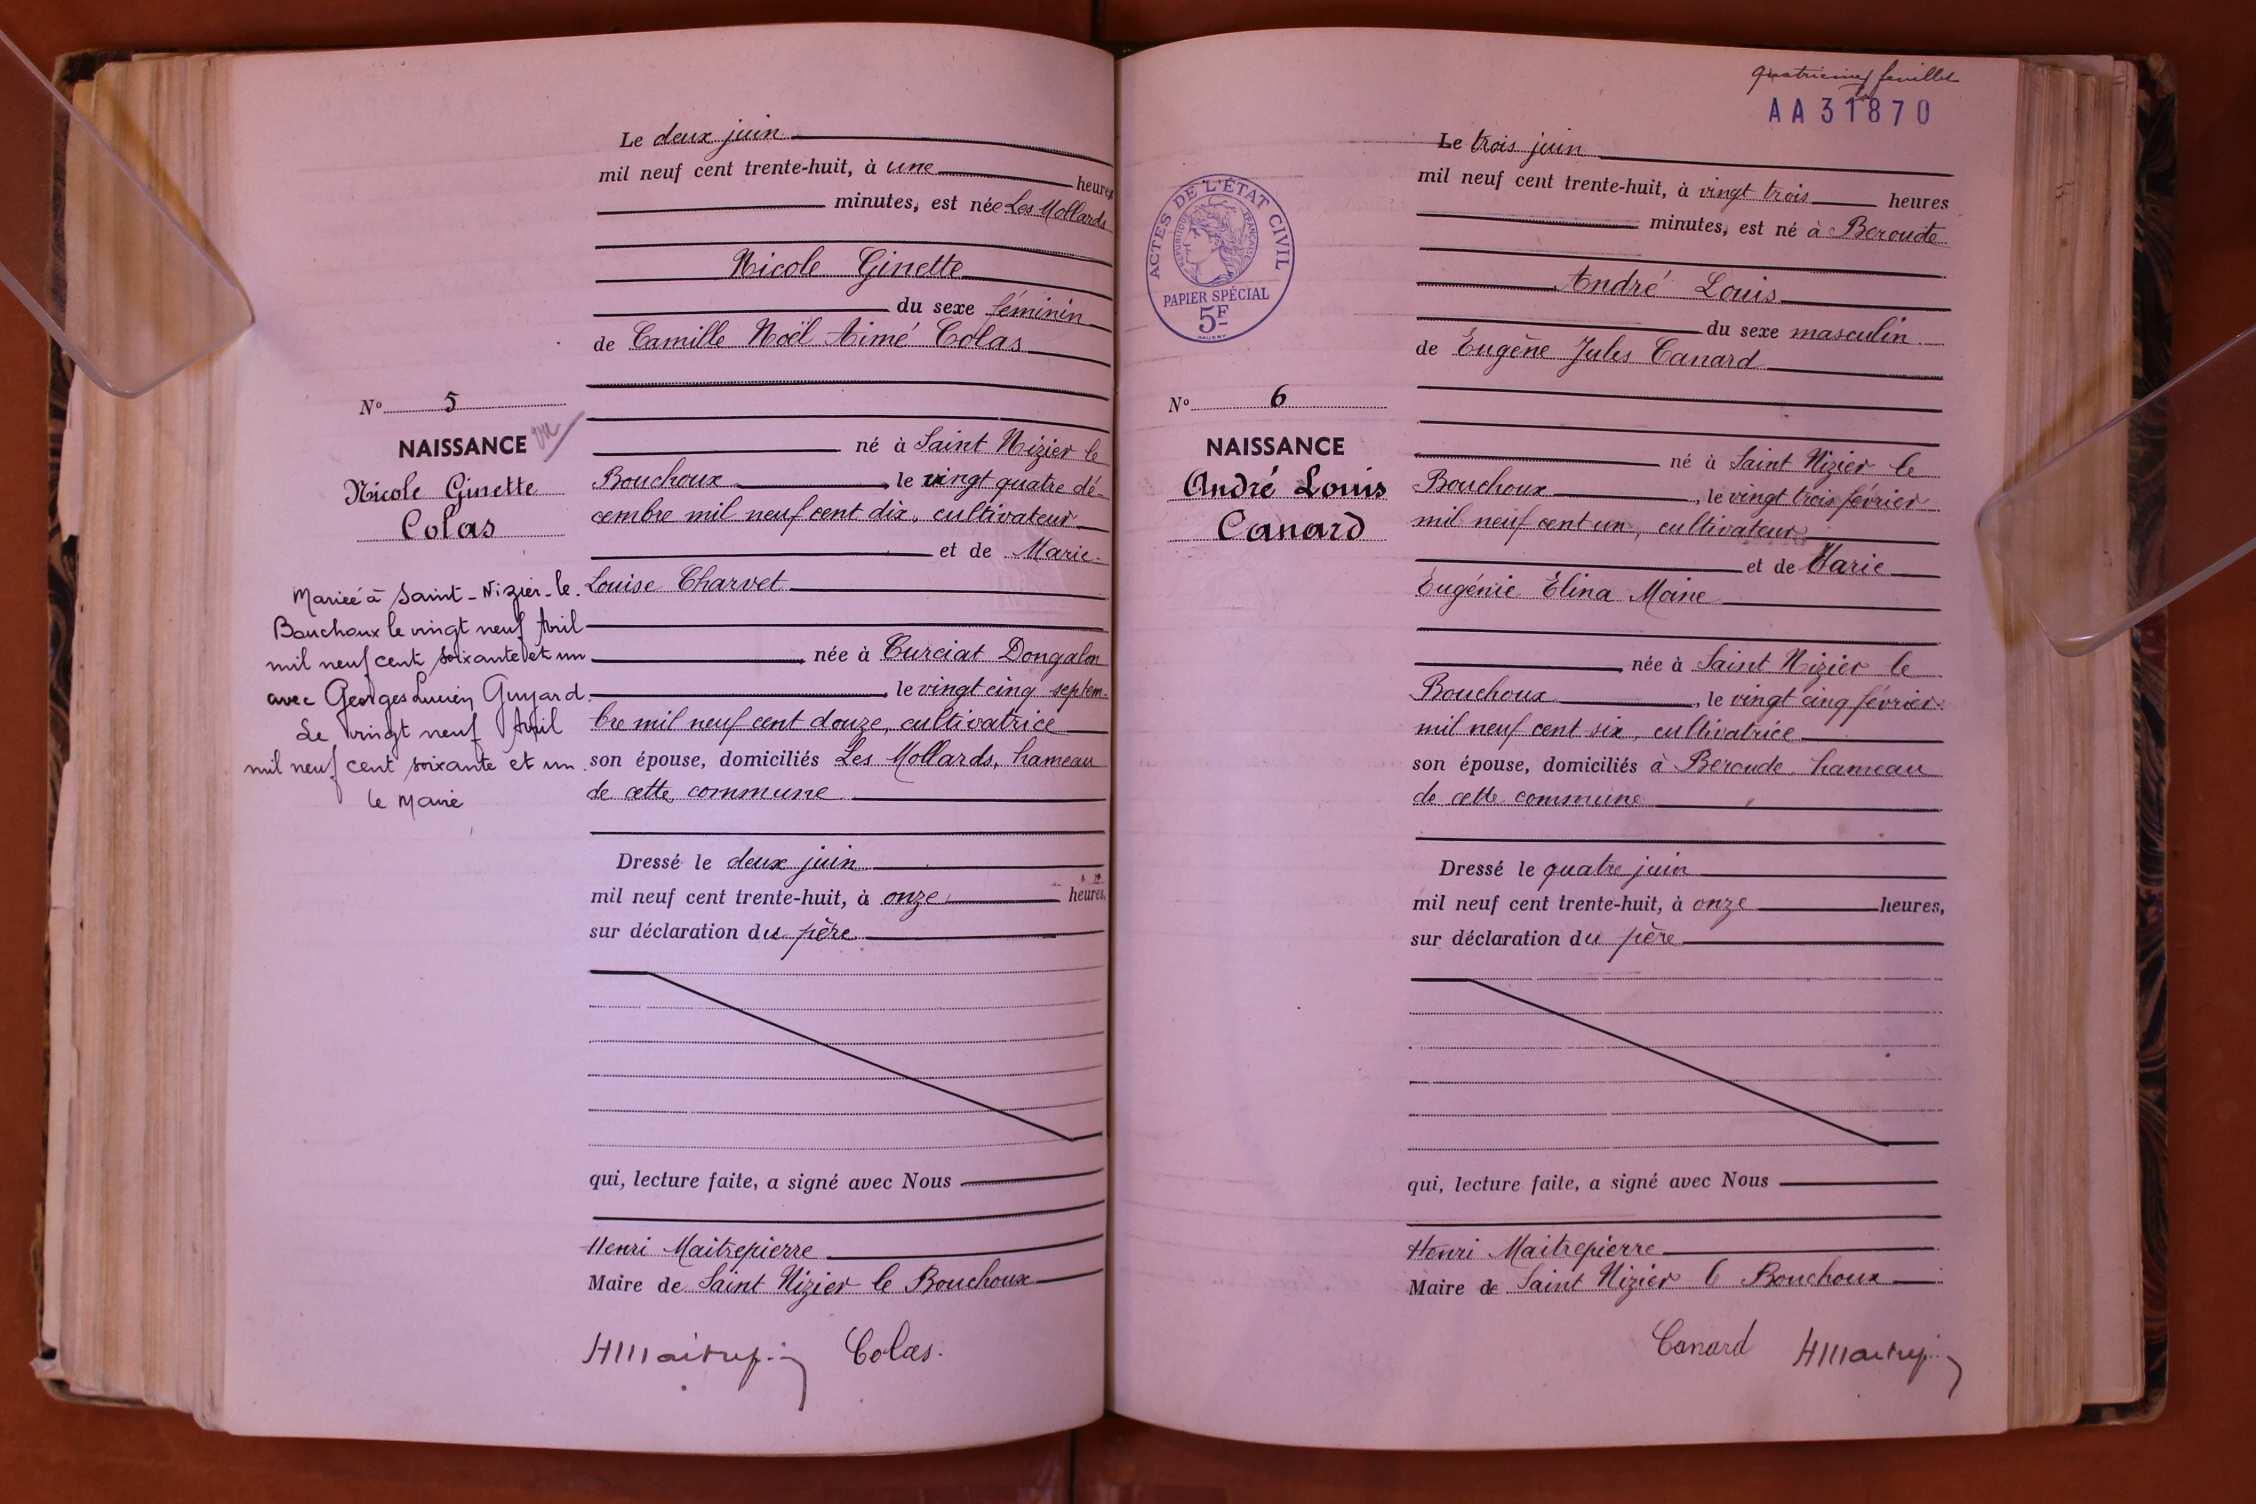 Le deux juin
mil neuf cent trente-huit, à une heures
minutes, est née Les Mollards
Nicole Ginette
du sexe féminin
de Camille Noël Aimé Colas
né à Saint Nizier le
Bouchoux, le vingt quatre dé-
cembre mil neuf cent dix, cultivateur
et de Marie-
Louise Charvet
née à Curciat Dongalon
, le vingt cinq septem-
bre mil neuf cent douze, cultivatrice
son épouse, domiciliés Les Mollards, hameau
de cette commune
Dressé le deux juin
mil neuf cent trente-huit, à onze heures,
sur déclaration du père
qui, lecture faite, a signé avec Nous
Henri Maitrepierre
Maire de Saint Nizier le Bouchoux
HMaitrepi Colas.
No 5
NAISSANCE
Nicole Ginette
Colas
Mariée à Saint-Nizier-le-
Bouchoux le vingt neuf Avril
mil neuf cent soixante et un
avec Georges Lucien Guyard.
Le vingt neuf Avril
mil neuf cent soixante et un.
le Maire
quatrième feuillet
AA31870
Le trois juin
mil neuf cent trente-huit, à vingt trois heures
minutes, est né à Beroude
André Louis
du sexe masculin
de Eugène Jules Canard
né à Saint Nizier le
Bouchoux, le vingt trois février
mil neuf cent un, cultivateur
et de Marie
Eugénie Élina Moine
née à Saint Nizier le
Bouchoux, le vingt cinq février
mil neuf cent six, cultivatrice
son épouse, domiciliés à Beroude, hameau
de cette commune
Dressé le quatre juin
mil neuf cent trente-huit, à onze heures,
sur déclaration du père
qui, lecture faite, a signé avec Nous
Henri Maitrepierre
Maire de Saint Nizier le Bouchoux
Canard HMaitrepi
ACTES DE L'ÉTAT CIVIL
RÉPUBLIQUE FRANÇAISE
PAPIER SPÉCIAL
5F
No 6
NAISSANCE
André Louis
Canard